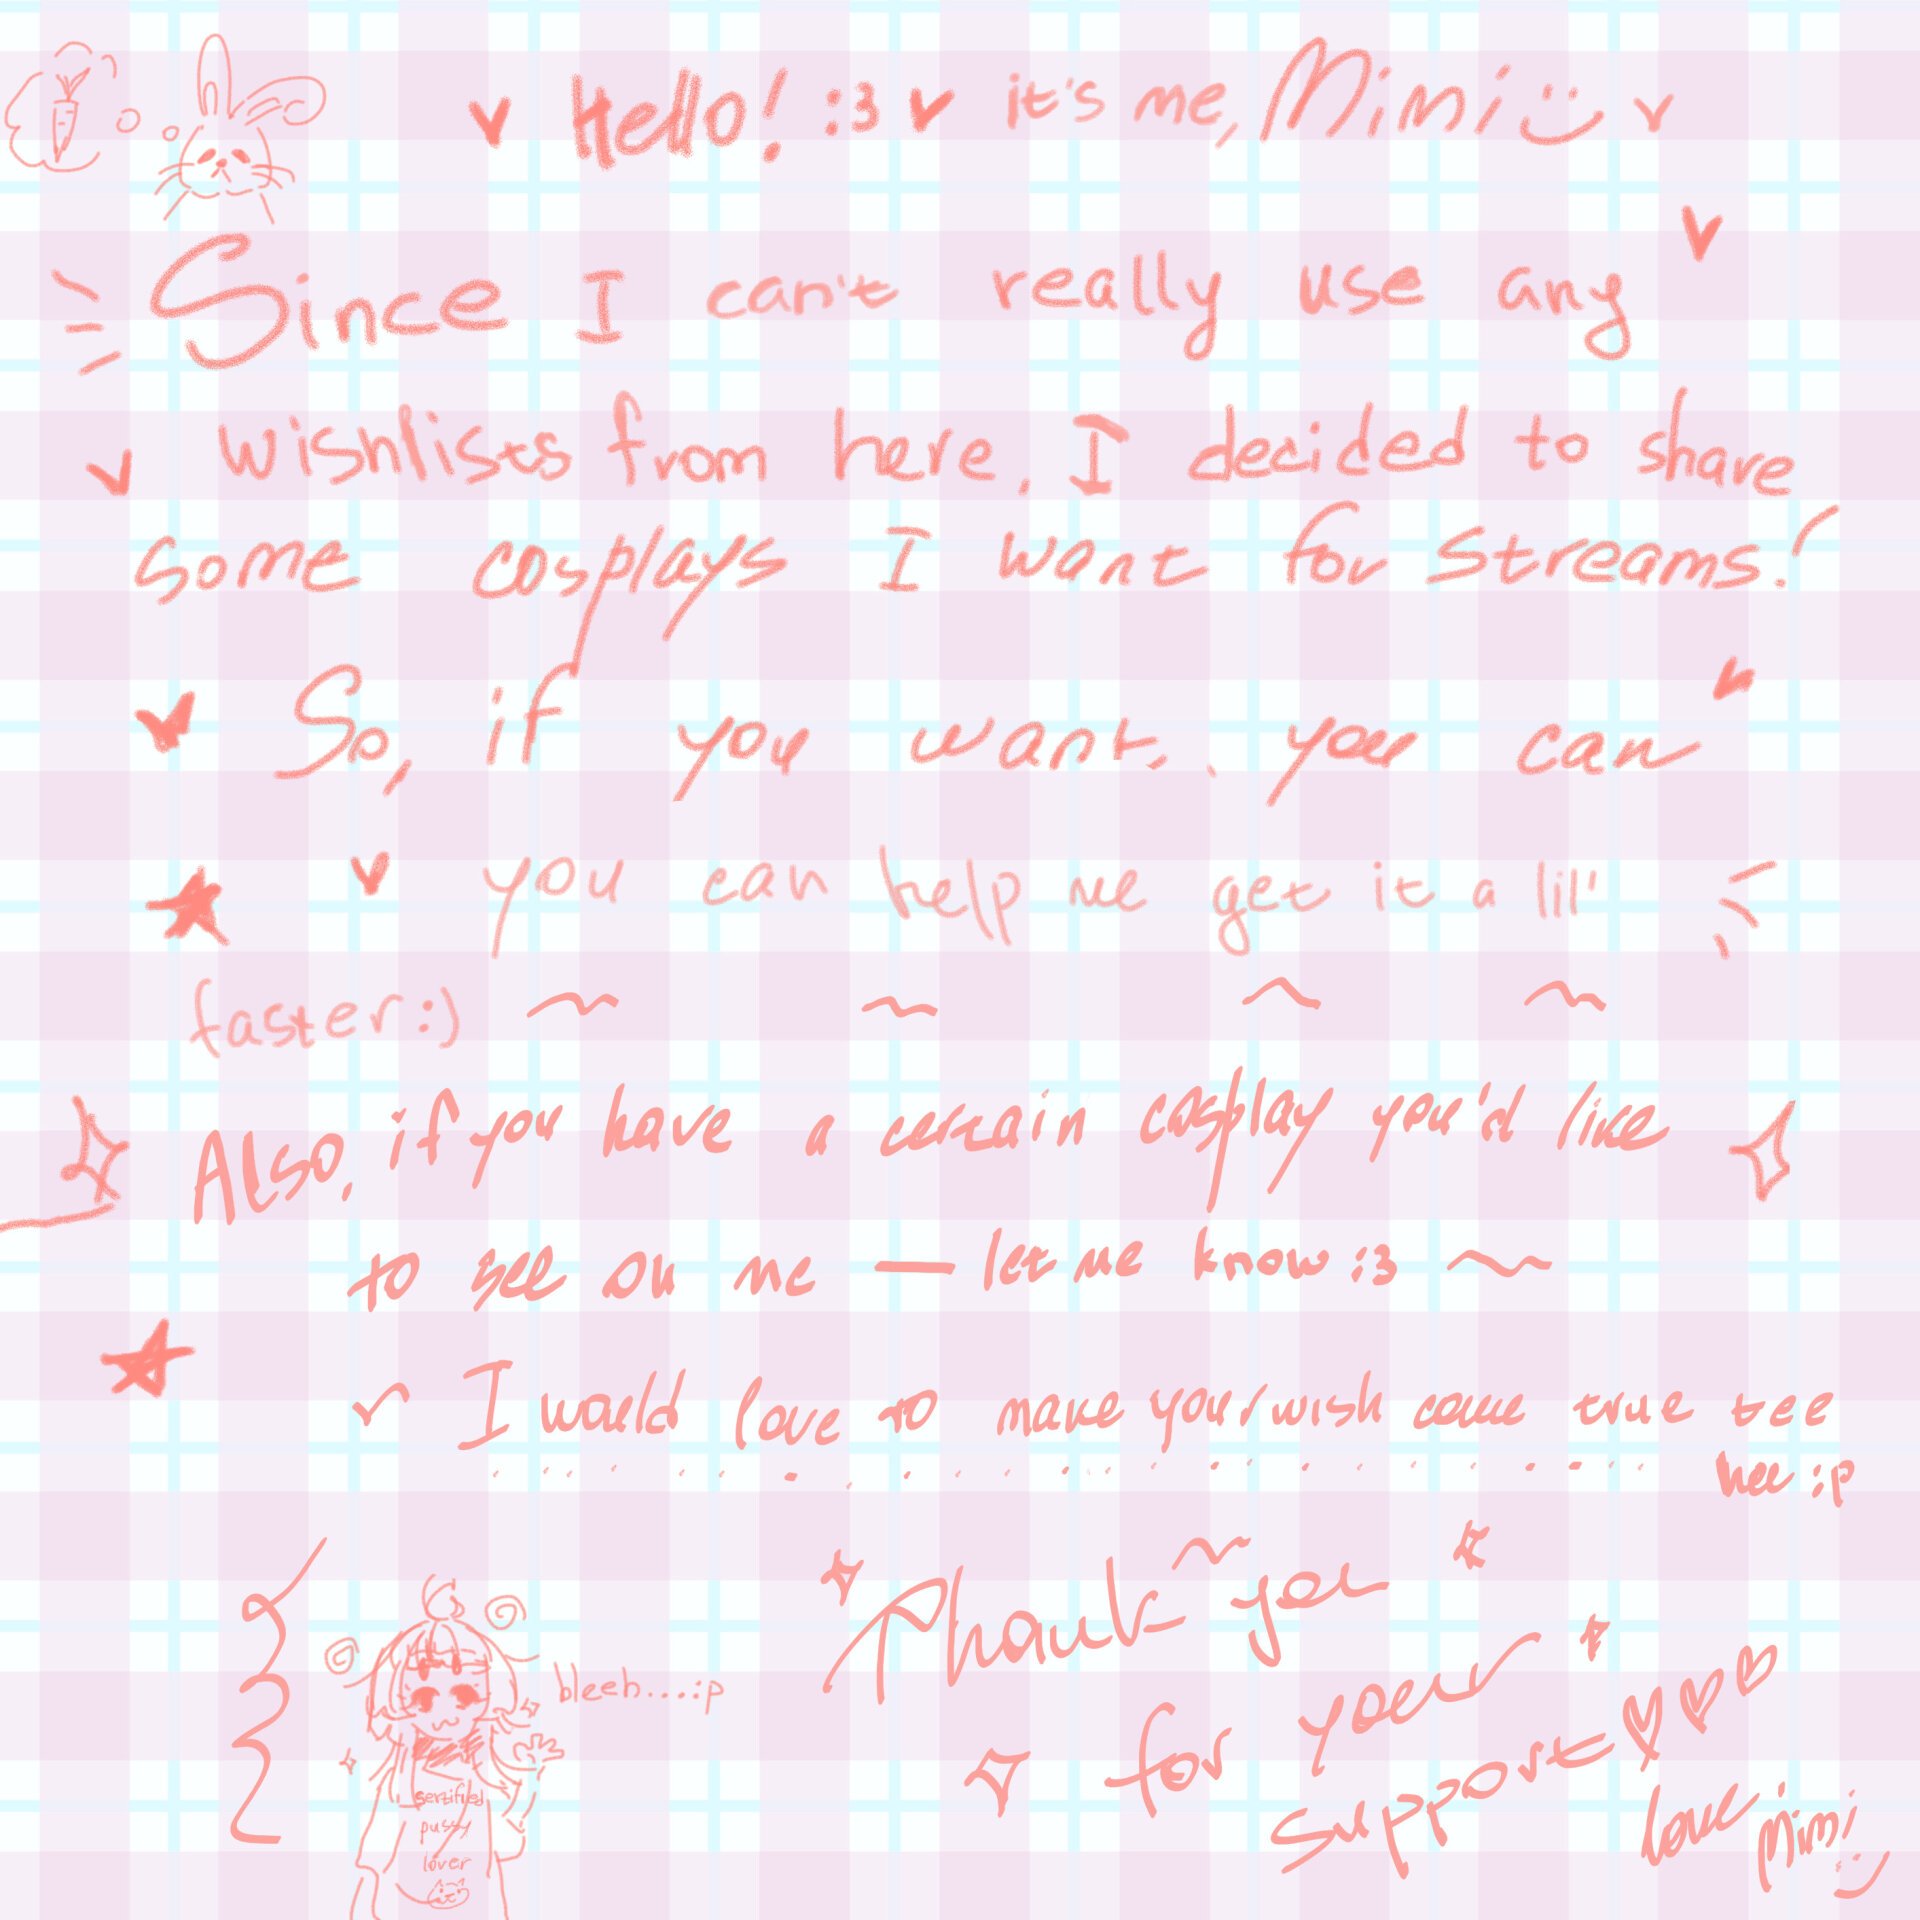 Hello! :3 it's me, Mimi
Since I can't really use any
wishlists from here, I decided to share
some cosplays I want for streams!
So, if you want, you can
you can help me get it a lil'
faster :)
Also, if you have a certain cosplay you'd like
to see on me — let me know :3
I would love to make your wish come true tee
hee :p
Thank you
for your
support
love Mimi
bleeh...:p
serzified
pussy
lover